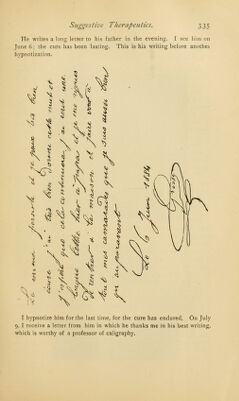 Suggestive Therapeutics.
335
He writes a long letter to his father in the evening. I see him on
June 6; the cure has been lasting. This is his writing before another
hypnotization.
Le même procédé et je peux très bien
écrire j'ai très bien dormi cette nuit et
j'espère que cela continuera j'ai écrit une
longue lettre hier à papa et je me réjouis
rentrer à la maison et faire voir à
tout mes camarades que je suis aussi bien
qu'auparavant
Le 6 Juin 1884
I hypnotize him for the last time, for the cure has endured. On July
9, I receive a letter from him in which he thanks me in his best writing,
which is worthy of a professor of caligraphy.